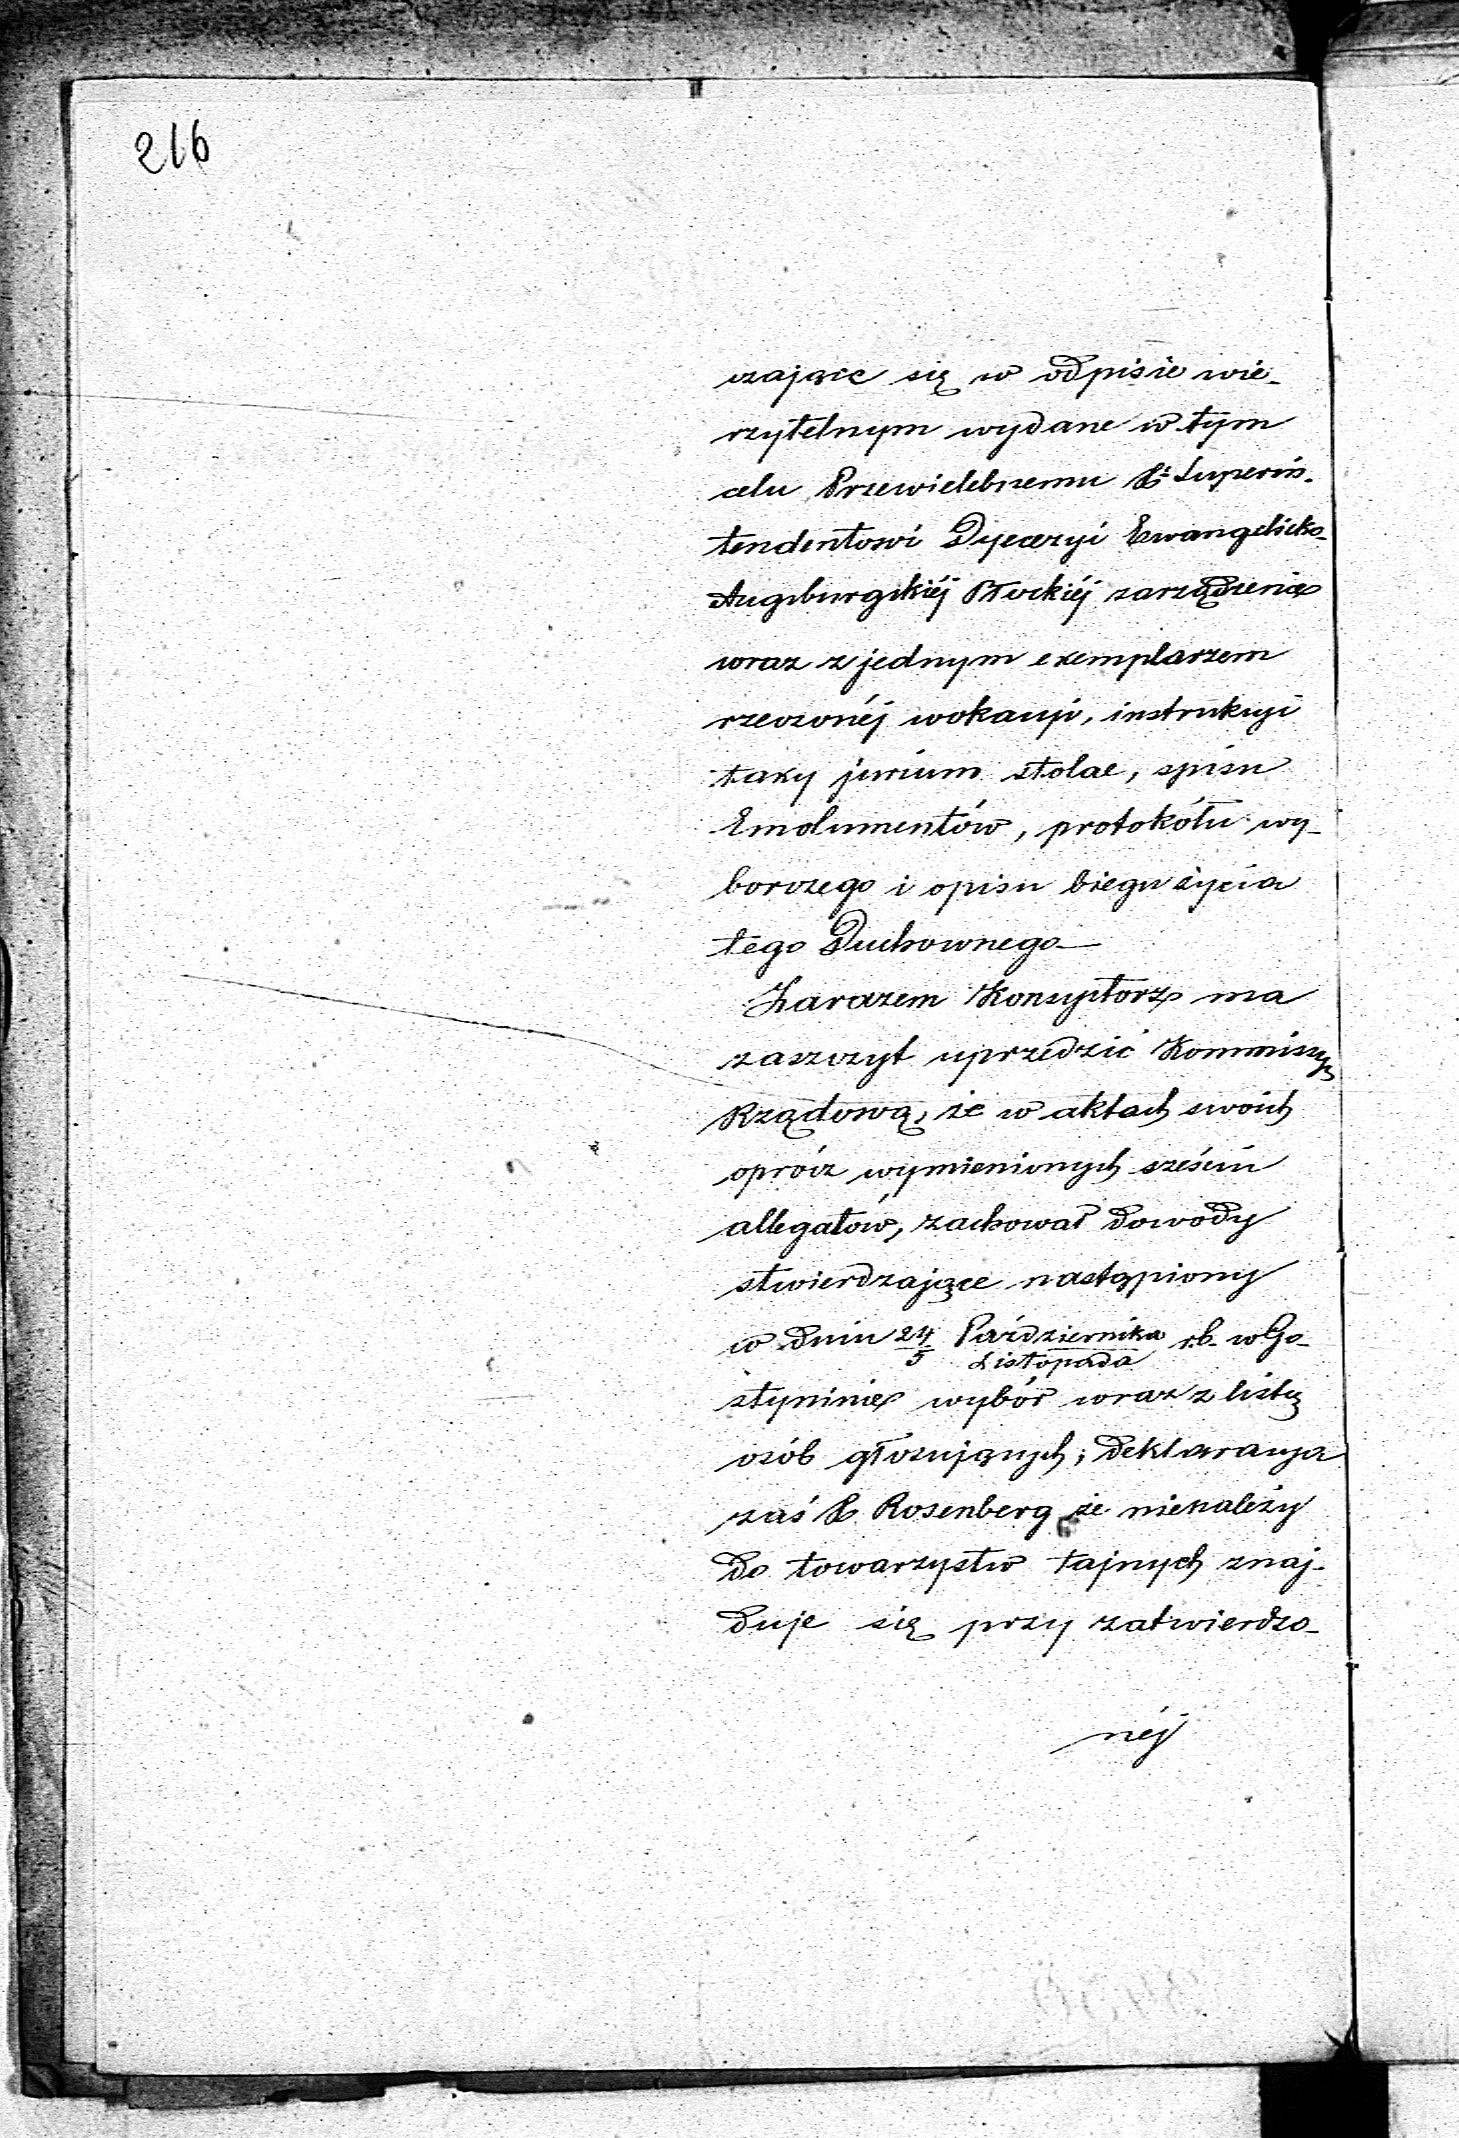 216
czając się w odpisie wie-
rzytelnym wydane w tym
celu Przewielebnemu X. Superin-
tendentowi Dyecezyi Ewangelicko-
Augsburgskiéj Płockiéj zarządzenie
wraz z jednym exemplarzem
rzeczonéj wokacyi, instrukcyi
taxy jurium stolae, spisu
Emolumentów, protokółu wy-
borczego i opisu biegu życia
tego Duchownego—
Zarazem Konsystorz ma
zaszczyt uprzedzić Kommissyę
Rządową, że w aktach swoich
oprócz wymienionych sześciu
allegatów, zachował dowody
stwierdzające nastąpiony
w dniu 24/5 Października/Listopada r.b. w Go-
styninie wybór wraz z listą
osób głosujących; deklaracya
zaś X. Rosenberg że nienależy
do towarzystw tajnych znaj-
duje się przy zatwierdzo-
néj